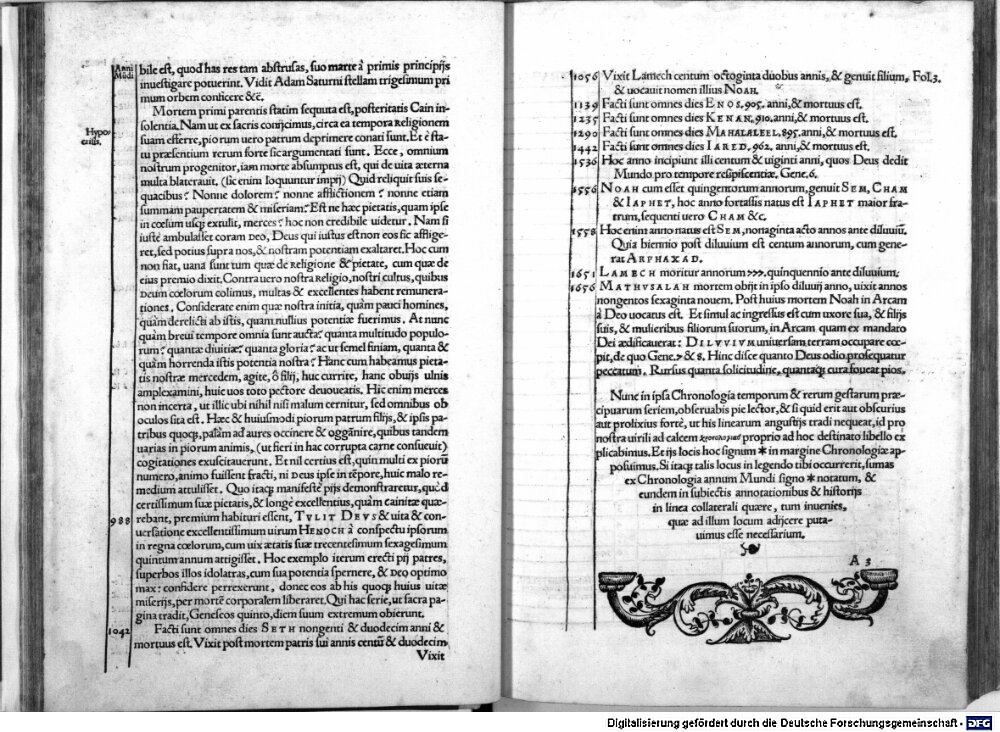 Anni
Mūdi
bile est, quod has res tam abstrusas, suo marte à primis principijs
inuestigare potuerint. Vidit Adam Saturni stellam trigesimum pri
mum orbem conficere &c̄.
Mortem primi parentis statim sequuta est, posteritatis Cain in-
solentia. Nam ut ex sacris conijcimus, circa ea tempora Religionem
Hypo
critis.
suam efferre, piorum uero patrum deprimere conati sunt. Et è sta-
tu præsentium rerum forte sic argumentati sunt. Ecce, omnium
nostrum progenitor, iam morte absumptus est, qui de uita æterna
multa blaterauit. (sic enim loquuntur impij) Quid reliquit suis se-
quacibus? Nonne dolorem? nonne afflictionem? nonne etiam
summam paupertatem & miseriam? Est ne hæc pietatis, quam ipse
in cœlum usq; extulit, merces? hoc non credibile uidetur. Nam si
iustè ambulasset coram DEO, Deus qui iustus est non eos sic afflige-
ret, sed potius supra nos, & nostram potentiam exaltaret. Hoc cum
non fiat, uana sunt tum quæ de Religione & pietate, cum quæ de
eius premio dixit. Contra uero nostra Religio, nostri cultus, quibus
Deum cœlorum colimus, multas & excellentes habent remunera-
tiones. Considerate enim quæ nostra initia, quàm pauci homines,
quàm derelicti ab istis, quam nullius potentiæ fuerimus. At nunc
quàm breui tempore omnia sunt aucta? quanta multitudo populo-
rum? quantæ diuitiæ? quanta gloria? ac ut semel finiam, quanta &
quàm horrenda istis potentia nostra? Hanc cum habeamus pieta-
tis nostræ mercedem, agite, ô filij, huc currite, hanc obuijs ulnis
amplexamini, huic uos toto pectore deuoueatis. Hic enim merces
non incerta, ut illic ubi nihil nisi malum cernitur, sed omnibus ob
oculos sita est. Hæc & huiusmodi piorum patrum filijs, & ipsis pa-
tribus quoq;, palàm ad aures occinere & oggānire, quibus tandem
uarias in piorum animis, (ut fieri in hac corrupta carne consueuit)
cogitationes exuscitauerunt. Et nil certius est, quin multi ex piorū
numero, animo fuissent fracti, ni Deus ipse in tēpore, huic malo re-
medium attulisset. Quo itaq; manifestè pijs demonstraretur, quòd
certissimum suæ pietatis, & longè excellentius, quàm cainitæ quæ-
988 rebant, premium habituri essent, TVLIT DEVS & uita & con-
uersatione excellentissimum uirum HENOCH à conspectu ipsorum
in regna cœlorum, cum uix ætatis suæ trecentesimum sexagesimum
quintum annum attigisset. Hoc exemplo iterum erecti pij patres,
superbos illos idolatras, cum sua potentia spernere, & DEO optimo
max: confidere perrexerunt, donec eos ab his quoq; huius uitæ
miserijs, per mortē corporalem liberaret. Qui hac serie, ut sacra pa-
gina tradit, Geneseos quinto, diem suum extremum obierunt.
1042 Facti sunt omnes dies SETH nongenti & duodecim anni &
mortuus est. Vixit post mortem patris sui annis centū & duodecim
Vixit
1056 Vixit Lamech centum octoginta duobus annis, & genuit filium, Fol. 3.
& uocauit nomen illius NOAH.
1139 Facti sunt omnes dies ENOS. 905. anni, & mortuus est.
1235 Facti sunt omnes dies KENAN. 910. anni, & mortuus est.
1290 Facti sunt omnes dies MAHALALEEL. 895. anni, & mortuus est.
1442 Facti sunt omnes dies IARED. 962. anni, & mortuus est.
1536 Hoc anno incipiunt illi centum & uiginti anni, quos Deus dedit
Mundo pro tempore resipiscentiæ. Gene. 6.
1556 NOAH cum esset quingentorum annorum, genuit SEM, CHAM
& IAPHET, hoc anno fortassis natus est IAPHET maior fra-
trum, sequenti uero CHAM &c.
1558 Hoc enim anno natus est SEM, nonaginta acto annos ante diluuiū.
Quia biennio post diluuium est centum annorum, cum gene-
rat ARPHAXAD.
1651 LAMECH moritur annorum 777. quinquennio ante diluuium.
1656 MATHVSALAH mortem obijt in ipso diluuij anno, uixit annos
nongentos sexaginta nouem. Post huius mortem Noah in Arcam
à Deo uocatus est. Et simul ac ingressus est cum uxore sua, & filijs
suis, & mulieribus filiorum suorum, in Arcam quam ex mandato
Dei ædificauerat: DILVVIVM uniuersam terram occupare cœ-
pit, de quo Gene. 7 & 8. Hinc disce quanto Deus odio prosequatur
peccatum. Rursus quanta solicitudine, quantaq; cura foueat pios.
Nunc in ipsa Chronologia temporum & rerum gestarum præ-
cipuarum seriem, obseruabis pie lector, & si quid erit aut obscurius
aut prolixius fortè, ut his linearum angustijs tradi nequeat, id pro
nostra uirili ad calcem proprio ad hoc destinato libello ex
plicabimus. Et ijs locis hoc signum * in margine Chronologiæ ap-
posuimus. Si itaq; talis locus in legendo tibi occurrerit, sumas
ex Chronologia annum Mundi signo * notatum, &
eundem in subiectis annotationibus & historijs
in linea collaterali quære, tum inuenies,
quæ ad illum locum adijcere puta-
uimus esse necessarium.
A 3
Digitalisierung gefördert durch die Deutsche Forschungsgemeinschaft - DFG